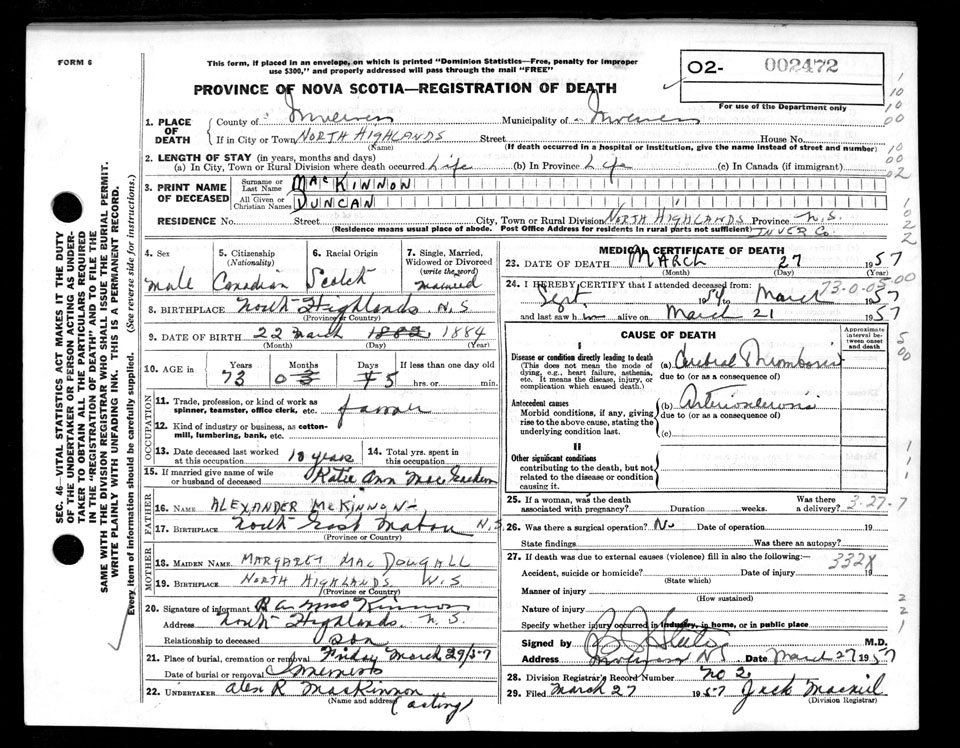 FORM 6
This form, if placed in an envelope, on which is printed "Dominion Statistics—Free, penalty for improper
use $300," and properly addressed will pass through the mail "FREE"
PROVINCE OF NOVA SCOTIA—REGISTRATION OF DEATH
O2- 002472
For use of the Department only
1. PLACE OF DEATH
County of Inverness Municipality of Inverness
If in City or Town NORTH HIGHLANDS Street House No.
(Name) (If death occurred in a hospital or institution, give the name instead of street and number)
2. LENGTH OF STAY (in years, months and days)
(a) In City, Town or Rural Division where death occurred Life (b) In Province Life (c) In Canada (if immigrant)
3. PRINT NAME OF DECEASED
Surname or Last Name MacKINNON
All Given or Christian Names DUNCAN
RESIDENCE No. Street City, Town or Rural Division NORTH HIGHLANDS Province N.S.
(Residence means usual place of abode. Post Office Address for residents in rural parts not sufficient) INVER Co.
4. Sex male
5. Citizenship (Nationality) Canadian
6. Racial Origin Scotch
7. Single, Married, Widowed or Divorced (write the word) married
8. BIRTHPLACE North Highlands N.S
(Province or Country)
9. DATE OF BIRTH 22 march 1882 1884
(Month) (Day) (Year)
10. AGE in Years Months Days If less than one day old
73 0 5 hrs. or min.
OCCUPATION
11. Trade, profession, or kind of work as spinner, teamster, office clerk, etc. farmer
12. Kind of industry or business, as cotton-mill, lumbering, bank, etc.
13. Date deceased last worked at this occupation 10 years
14. Total yrs. spent in this occupation
15. If married give name of wife or husband of deceased Katie Ann MacEachern
FATHER
16. NAME ALEXANDER McKINNON
17. BIRTHPLACE North East Mabou N.S.
(Province or Country)
MOTHER
18. MAIDEN NAME MARGARET MACDOUGALL
19. BIRTHPLACE NORTH HIGHLANDS N.S
(Province or Country)
20. Signature of informant Kinnon
Address North Highlands. N. S.
Relationship to deceased son
21. Place of burial, cremation or removal Friday March 29/57
Date of burial or removal Inverness
22. UNDERTAKER Alex R MacKinnon
(Name and address) (acting)
SEC. 46—VITAL STATISTICS ACT MAKES IT THE DUTY
OF THE UNDERTAKER OR PERSON ACTING AS UNDER-
TAKER TO OBTAIN ALL THE PARTICULARS REQUIRED
IN THE "REGISTRATION OF DEATH" AND TO FILE THE
SAME WITH THE DIVISION REGISTRAR WHO SHALL ISSUE THE BURIAL PERMIT.
WRITE PLAINLY WITH UNFADING INK. THIS IS A PERMANENT RECORD.
Every item of information should be carefully supplied. (See reverse side for instructions.)
MEDICAL CERTIFICATE OF DEATH
23. DATE OF DEATH MARCH 27 1957
(Month) (Day) (Year)
73-0-05-00
24. I HEREBY CERTIFY that I attended deceased from:
Sept. 1954 to March 1957
and last saw him alive on March 21 1957
CAUSE OF DEATH
Approximate interval between onset and death
I
Disease or condition directly leading to death
(This does not mean the mode of dying, e.g., heart failure, asthenia, etc. It means the disease, injury, or complication which caused death.)
(a) Cerebral Thrombosis
due to (or as a consequence of)
Antecedent causes
Morbid conditions, if any, giving rise to the above cause, stating the underlying condition last.
(b) Arteriosclerosis
due to (or as a consequence of)
(c)
II
Other significant conditions
contributing to the death, but not related to the disease or condition causing it.
25. If a woman, was the death associated with pregnancy? Duration weeks. Was there a delivery? 3-27-7
26. Was there a surgical operation? No Date of operation 19
State findings Was there an autopsy?
27. If death was due to external causes (violence) fill in also the following:— 332X
Accident, suicide or homicide? Date of injury 19
(State which)
Manner of injury
(How sustained)
Nature of injury
Specify whether injury occurred in industry, in home, or in public place
Signed by M.D.
Address Inverness NS Date March 27 1957
28. Division Registrar's Record Number No 2
29. Filed March 27 1957 Jack Macneil
(Division Registrar)